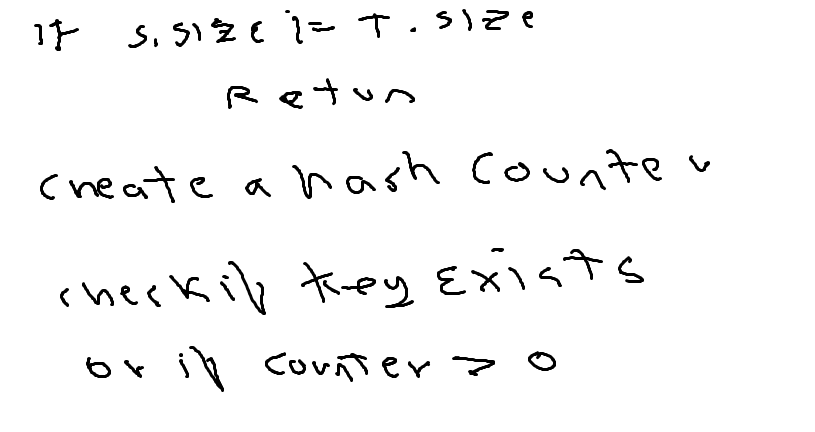 if s.size != T.size
Retun
create a hash counter
check if key Exists
or if counter > 0